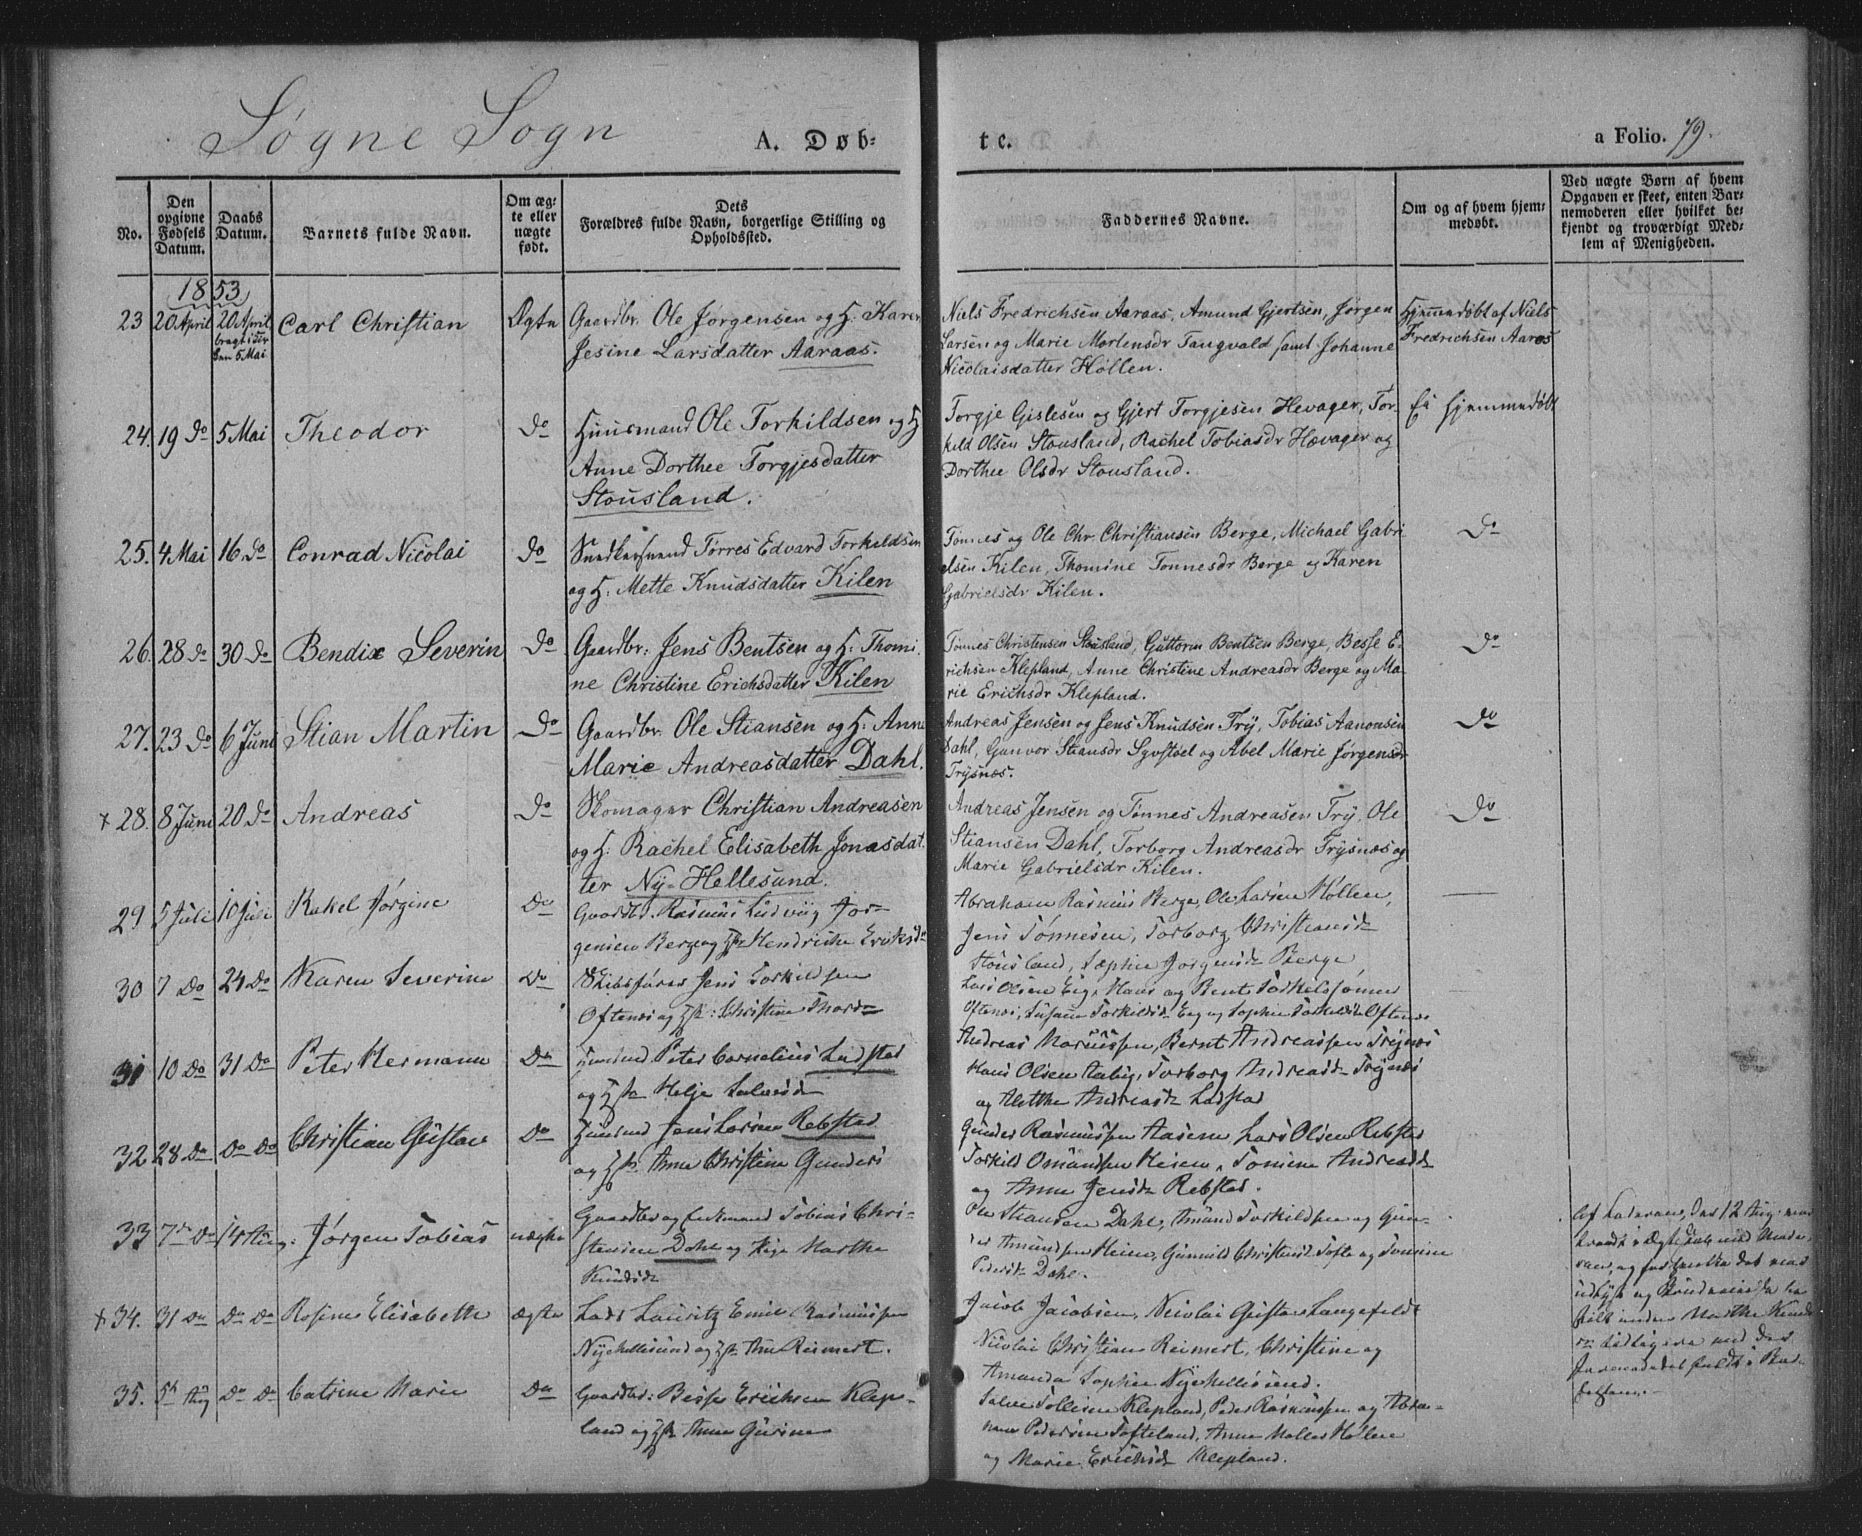 Søgne Sogn
A. Døb-
te.
a Folio. 79.
No.
Den opgivne Fødsels Datum.
Daabs Datum.
Barnets fulde Navn.
Om ægte eller uægte født.
Dets
Forældres fulde Navn, borgerlige Stilling og
Opholdssted.
Faddernes Navne.
Om og af hvem hjem-
medøbt.
Ved uægte Børn af hvem
Opgaven er skeet, enten Bar-
nemoderen eller hvilket be-
kjendt og troværdigt Med-
lem af Menigheden.
1853
23 20 April 20 April bragt i Kirken 5 Mai Carl Christian Ægte Gaardbr. Ole Jørgensen og H: Karen
Jesine Larsdatter Aaraas.
Niels Fredrichsen Aaraas, Amund Gjertsen, Jørgen
Larsen og Marie Mortensdr Tangvald samt Johanne
Nicolaisdatter Høllen.
Hjemmedøbt af Niels
Fredrichsen Aaros
24. 19 Do 5 Mai Theodor Do Huusmand Ole Torkildsen og H
Anne Dorthee Torgjesdatter
Stousland.
Torgje Gislesen og Gjert Torgjesen Hevager, Tor-
kild Olsen Stousland, Rachel Tobiasdr Hævager og
Dorthee Olsdr Stousland.
Ei hjemmedøbt
25. 4 Mai 16 Do Conrad Nicolai Do Snedkersvend Tørres Edvard Torkildsen
og H: Mette Knudsdatter Kilen
Tønnes og Ole Chr. Christiansen Berge, Michael Gabri
elsen Kilen, Thomine Tønnesdr Berge og Karen
Gabrielsdr Kilen.
Do
26. 28 Do 30 Do Bendix Severin Do Gaardbr: Jens Bentsen og H: Thomi
ne Christine Erichsdatter Kilen
Tønnes Christensen Stousland, Guttorm Bentsen Berge, Besse E-
richsen Klepland, Anne Christine Andreasdr Berge og Ma
rie Erichsdr Klepland.
Do
27. 23 Do 6 Juni Stian Martin Do Gaardbr. Ole Stiansen og H: Anne
Marie Andreasdatter Dahl.
Andreas Jensen og Jens Knudsen Try, Tobias Aanonsen
Dahl, Gunvor Stiansdr Sgvstøel og Abel Marie Jørgensdr
Trysnæs.
Do
+ 28. 8 Juni 20 Do Andreas Do Skomager Christian Andreasen
og H: Rachel Elisabeth Jonasdat
ter Ny-Hellesund.
Andreas Jensen og Tønnes Andreasen Try, Ole
Stiansen Dahl, Torborg Andreasdr Trysnæs og
Marie Gabrielsdr Kilen.
Do
29 5 Juli 10 Juli Rakel Jørgine Do Gaardbr. Rasmus Ludvig Jør-
gensen Berge og Hst Hendrikke Eriksd
Abraham Rasmus Berge, Ole Larsen Høllen,
Jens Tønnesen, Torborg Christiansd
Stousland, Sophie Jørgensd Berge
30 7 Do 24 Do Karen Severine Do Skibsfører Jens Torkildsen
Oftenes og Hst: Christine Thord
Lars Olsen Eig, Hans og Bent Torkilssønner
Oftenes, Susane Torkildsd Eeg og Sophie Torkildsd Oftenes
31 10 Do 31 Do Peter Hermann Do Huusmd Peter Cornelius Ludstad
og Hst Helje Salvesd
Andreas Marcussen, Bernt Andreassen Trysnes
Hans Olsen Aaby, Torborg Andreasd Trysnes
og Andreasd Ladstad
32 28 Do Do Do Christian Gustav Do Huusmd Jens Larsen Rebstad
og Hst Anne Christine Gunders
Gunder Rasmussen Aasene, Lars Olsen Rebstad
Torkild Omundsen Heien, Tomine Andreasd
og Anne Jensd Rebstad.
33 7de Do 14 Aug: Jørgen Tobias uægte Gaardbr og Enkemand Tobias Chri-
stensen Dahl og Pige Marthe
Knudsd
Ole Stiansen Dahl, Amund Torkildsen og Gun-
der Amundsen Heien, Gunnild Christensd Tofte og Tomine
Pedersd Dahl.
Af Faderen, den 12 Aug.
med Mode-
ren, og
udlyst og
Marthe Knuds
med den
+ 34. 31 Do Do Do Rosine Elisabeth ægte Lods Lauritz Emil Rasmussen
Nyehellesund og Hst Anne Reimert.
Jacob Jacobsen, Nicolai Gustav Langefeldt
Nicolai Christian Reimert, Christine og
Amanda Sophie Nyehellesund.
35. 5te Aug Do Do Catrine Marie Do Gaardbr: Besse Ericksen Klep-
land og Hst Anne Gurine
Salve Tollisen Klepland, Peder Rasmussen og Abra-
ham Pedersen Tofteland, Anne Malles Høllen
og Marie Erichsd Klepland.